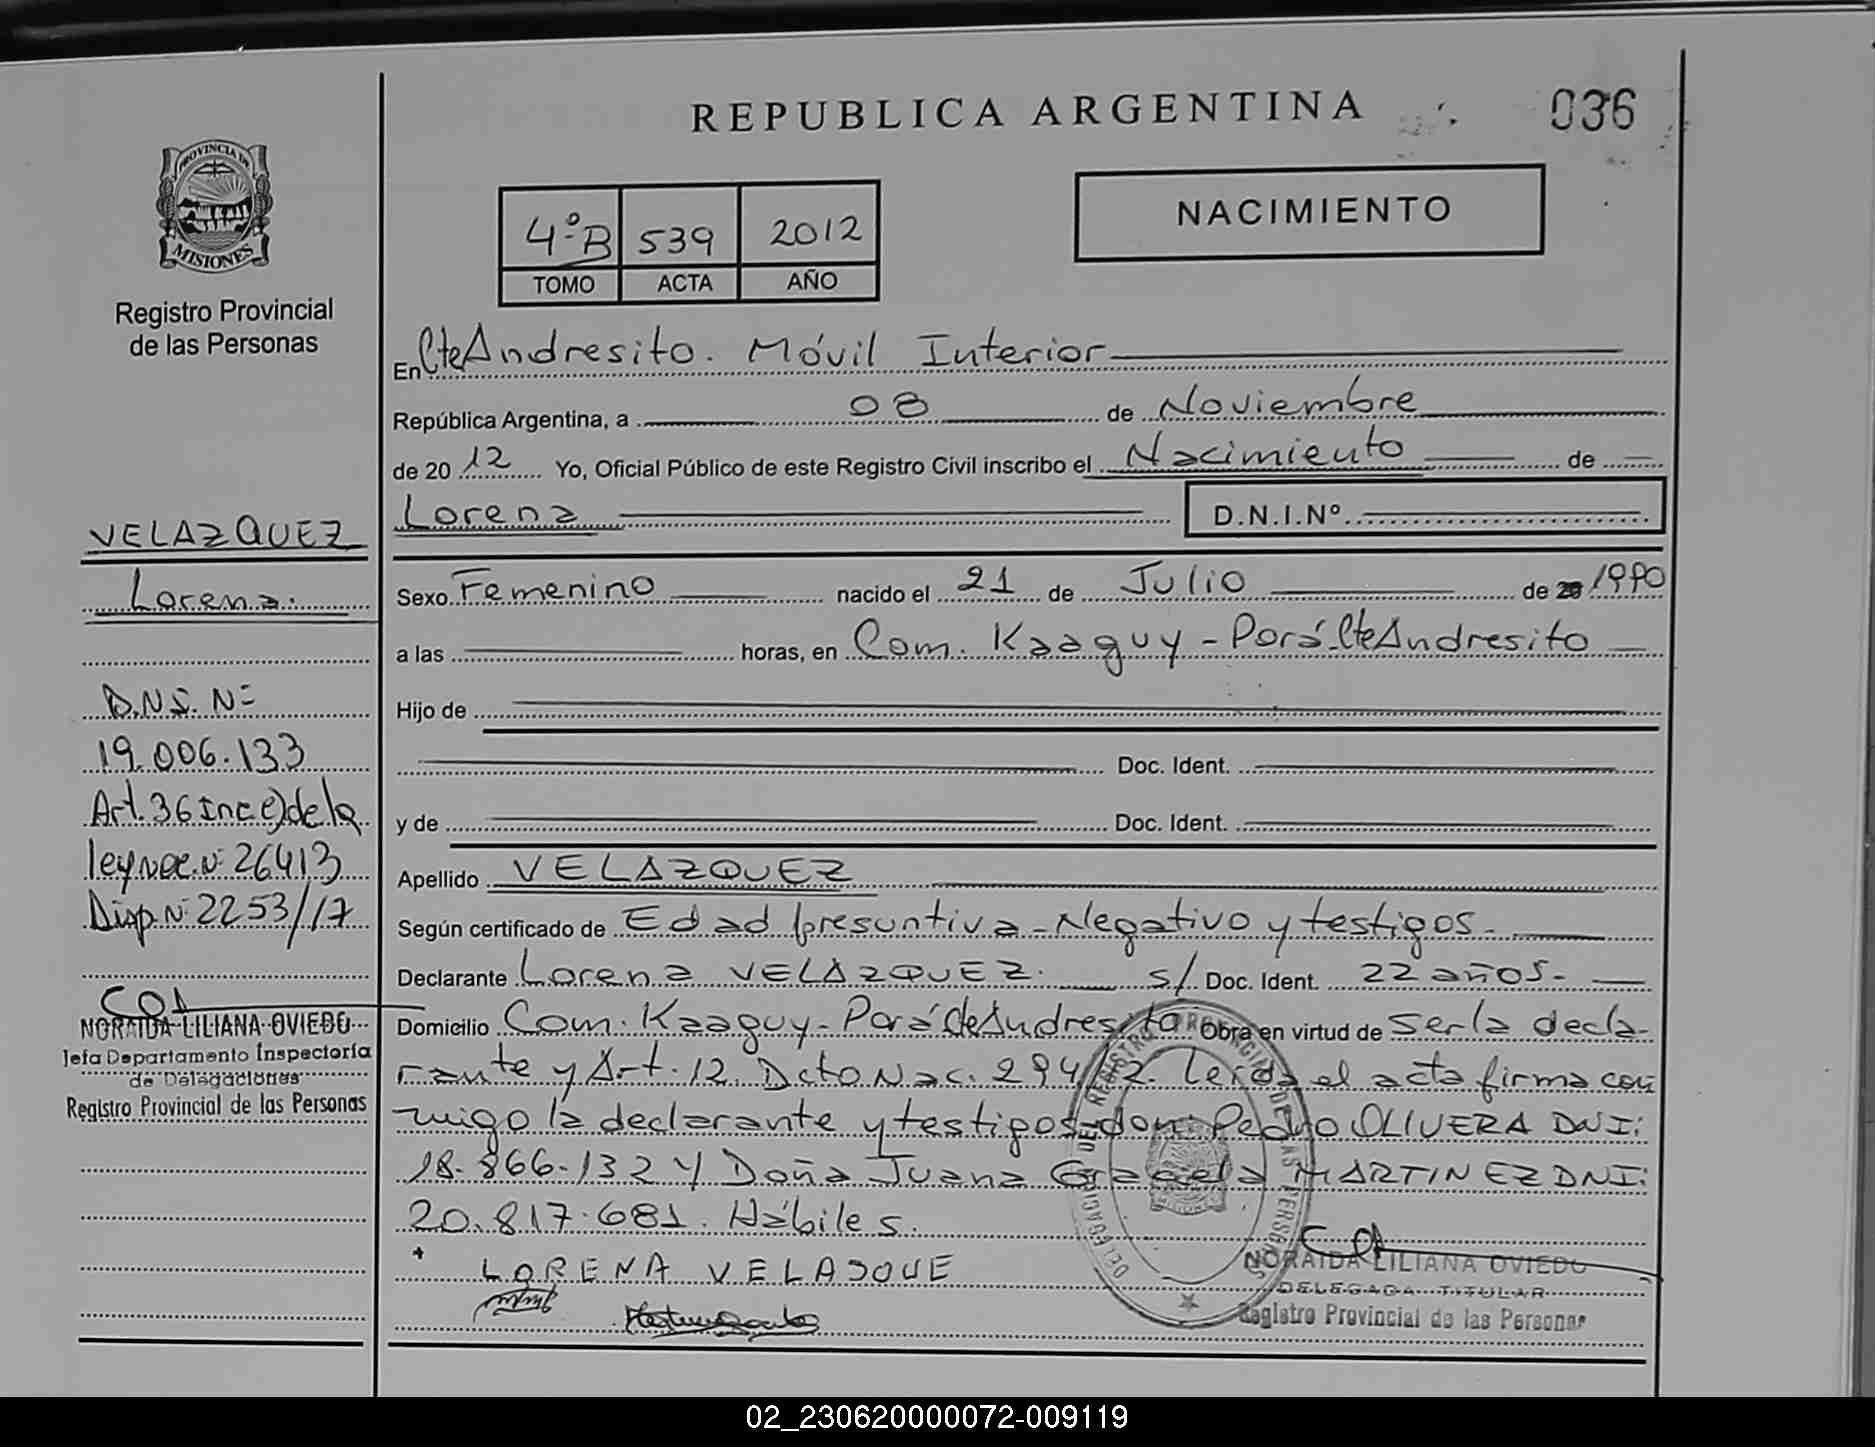 REPUBLICA ARGENTINA
036
PROVINCIA DE
MISIONES
Registro Provincial
de las Personas
4º B 539 2012
TOMO ACTA AÑO
NACIMIENTO
En Cte Andresito. Móvil Interior
República Argentina, a 08 de Noviembre
de 2012 Yo, Oficial Público de este Registro Civil inscribo el Nacimiento de
Lorena D.N.I.Nº
VELAZQUEZ
Lorena.
D.N.I. Nº
19.006.133
Art. 36 Inc e) de la
ley Nac. Nº 26413
Disp. Nº 2253/17
NORAIDA LILIANA OVIEDO
Jefa Departamento Inspectoría
de Delegaciones
Registro Provincial de las Personas
Sexo Femenino nacido el 21 de Julio de 20 1990
a las horas, en Com. Kaaguy - Porá Cte Andresito
Hijo de
Doc. Ident.
y de Doc. Ident.
Apellido VELAZQUEZ
Según certificado de Edad presuntiva - Negativo y testigos.
Declarante Lorena VELAZQUEZ. s/ Doc. Ident. 22 años.
Domicilio Com. Kaaguy - Porá Cte Andresito Obra en virtud de ser la decla-
rante y Art. 12. Dcto Nac. 294/12. Leída el acta firma con
migo la declarante y testigos don: Pedro OLIVERA DNI:
18.866.132 y Doña Juana Graciela MARTINEZ DNI:
20.817.681. Hábiles.
LORENA VELASQUE
NORAIDA LILIANA OVIEDO
DELEGADA TITULAR
Registro Provincial de las Personas
DELEGACION DEL REGISTRO PROVINCIAL DE LAS PERSONAS
02_230620000072-009119